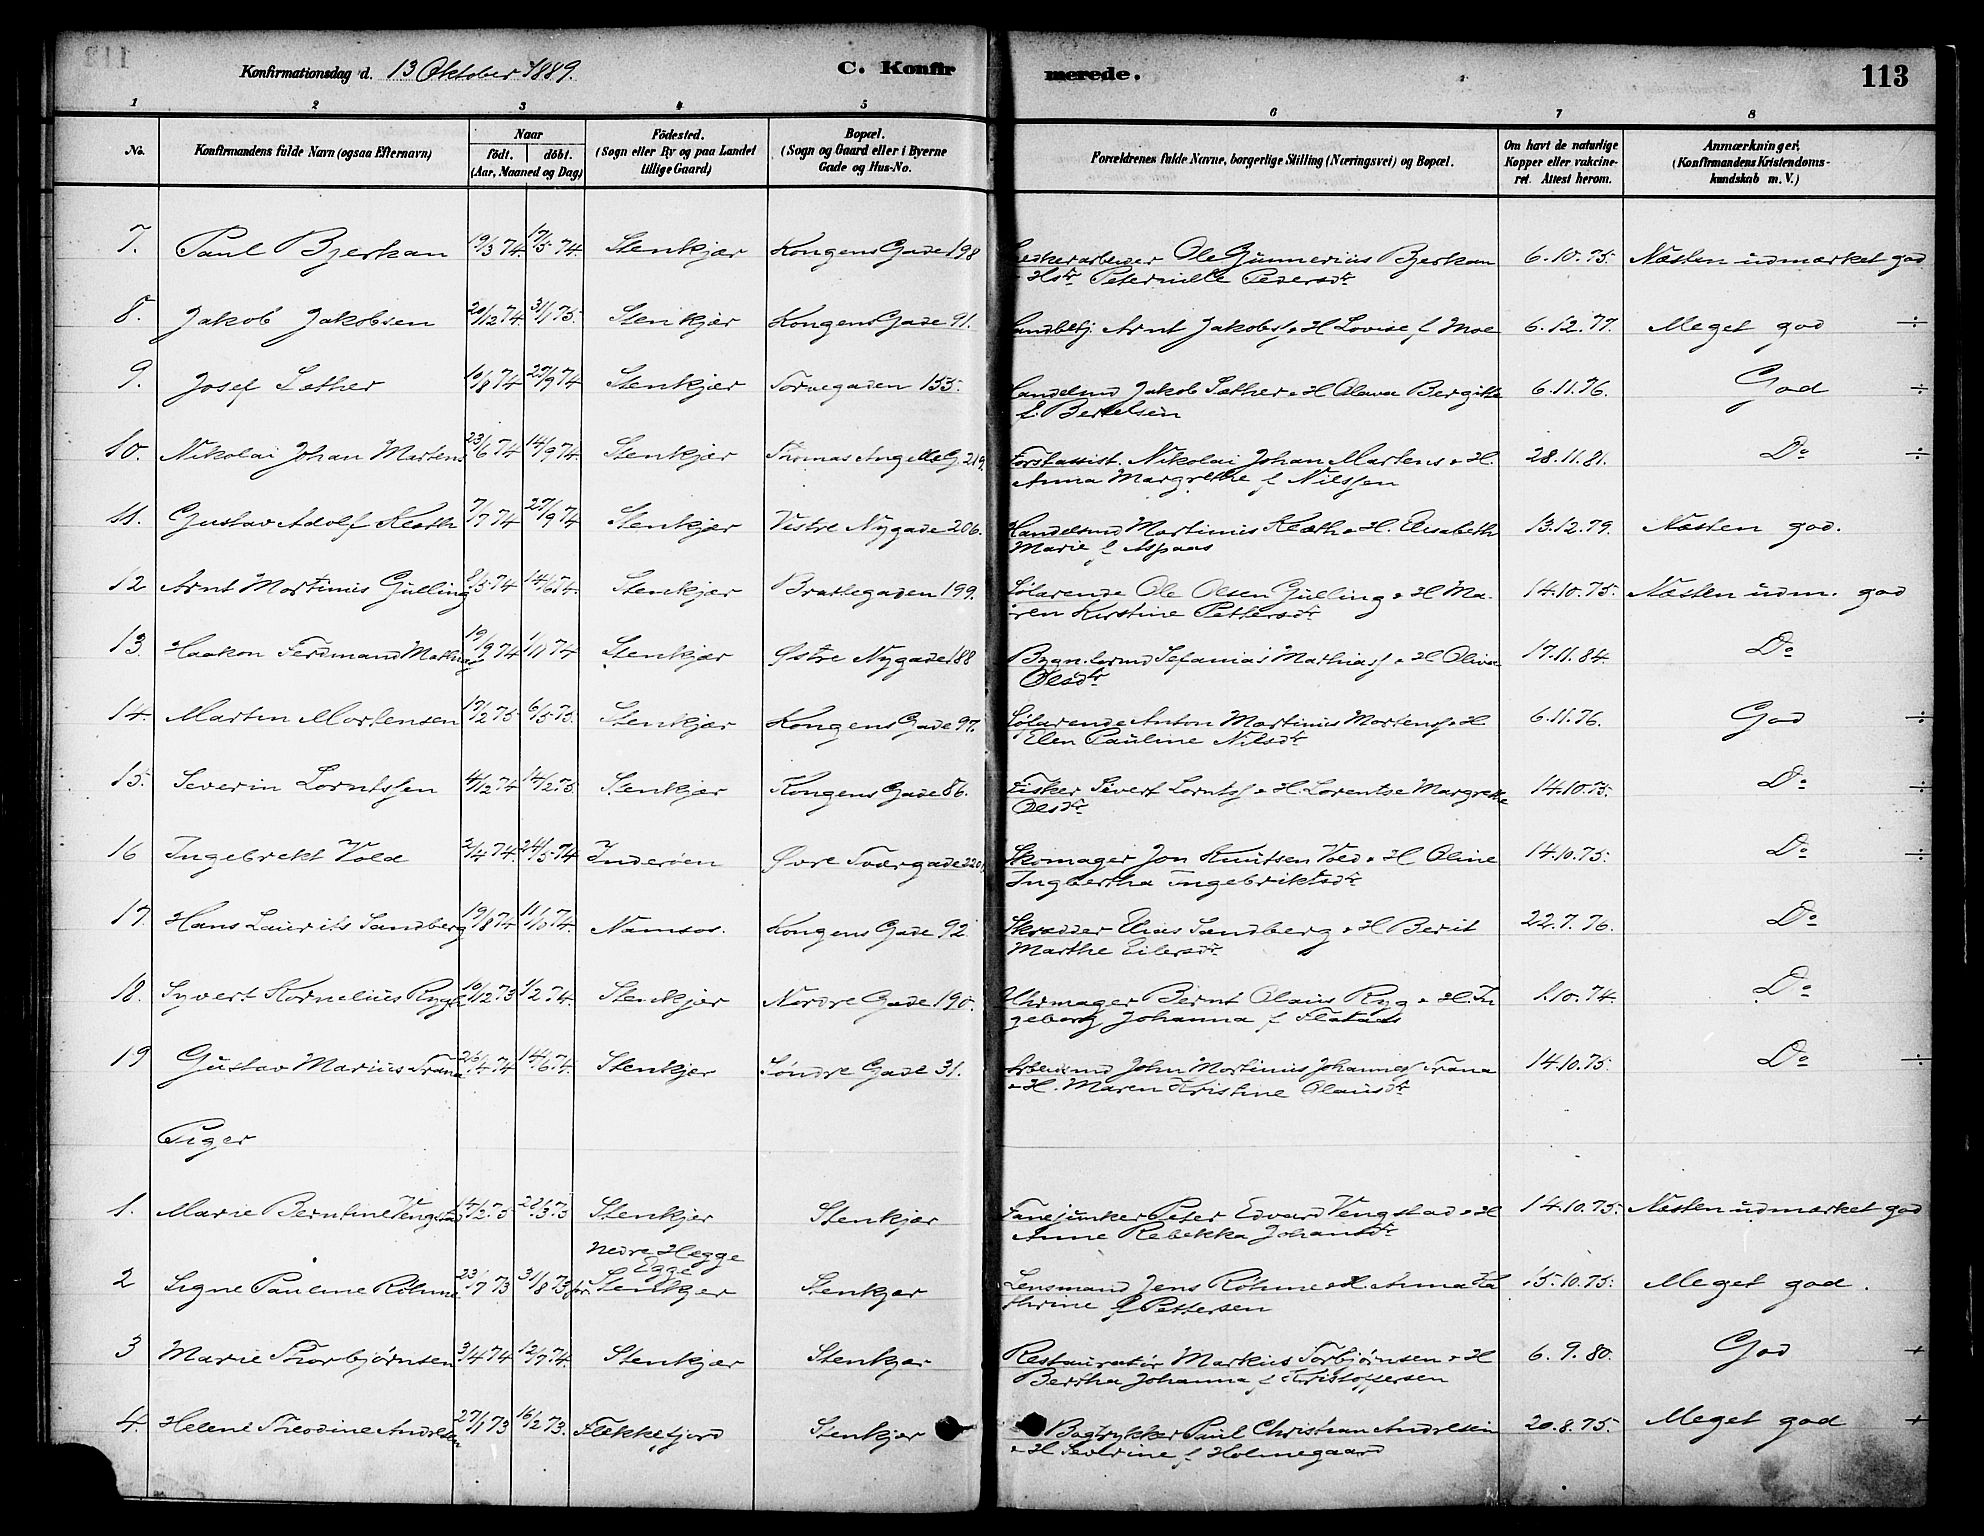 Konfirmationsdag d. 13 Oktober 1889. C. Konfirmerede. 113
1 2 3 4 5 6 7 8
No. Konfirmandens fulde Navn (ogsaa Efternavn) Naar födt. döbt. (Aar, Maaned og Dag) Födested. (Sogn eller By og paa Landet tillige Gaard) Bopæl. (Sogn og Gaard eller i Byerne Gade og Hus-No. Forældrenes fulde Navne, borgerlige Stilling (Næringsvei) og Bopæl. Om havt de naturlige Kopper eller vakcineret. Attest herom. Anmærkninger, (Konfirmandens Kristendomskundskab m. V.)
7. Paul Bjerkan 19/3 74. 17/5 74. Stenkjær Kongens Gade 198 Ole Gunnerius Bjerkan 6.10.75. Næsten udmærket god
Hstr Peternille Pedersdtr
8. Jakob Jakobsen 20/12 74. 31/1 75. Stenkjær Kongens Gade 91. Landbetj Arnt Jakobs. & H Lovise f Moe 6.12.77. Meget god ÷
9. Josef Sæther 10/8 74 27/9 74 Stenkjær Tornegaden 155. Handelsmd Jakob Sæther & H Olava Bergitte 6.11.76. God ÷
f. Bertelsen
10. Nikolai Johan Martens 23/6 74 14/9 74. Stenkjær Thomas Angells G. 219. Forstassist. Nikolai Johan Martens & H. 28.11.81. Do ÷
Anna Margrethe f Nilssen
11. Gustav Adolf Kløth 7/7 74 27/9 74 Stenkjær Vestre Nygade 206. Handelsmd Martinus Kløth & H. Elisabeth 13.12.79. Næsten god.
Marie f Aspaas
12 Arnt Martinus Gulling 8/5 74 14/6 74. Stenkjær Brattegaden 199. Sølarende Ole Olsen Gulling & H Ma- 14.10.75. Næsten udm. god
ren Kirstine Pettersdtr
13. Haakon Ferdinand 19/9 74 1/11 74 Stenkjær Østre Nygade 188 Bygn. Sefanias Mathiass & H Oliva 17.11.84. Do
Olsdtr
14. Martin Mortensen 17/2 75. 6/5 75. Stenkjær Kongens Gade 97. Sølarende Anton Martinus Mortens & H 6.11.76. God ÷
Elen Pauline Nilsdtr
15. Severin Lorntssen 4/12 74 14/2 75. Stenkjær Kongens Gade 86. Fisker Sivert Lornts & H. Lorentse Margrethe 14.10.75. Do ÷
Olsdtr
16 Ingebrekt Vold 2/4 74. 24/5 74 Inderøen Øvre Tværgade 220 Skomager Jon Knutsen Vold & H Oline 14.10.75. Do ÷
Ingbertha Ingebriktsdtr
17. Hans Laurits Sandberg 19/8 74 11/10 74. Namsos. Kongens Gade 92 Skrædder Elias Sandberg & H Berit 22.7.76. Do
Marthe Eilersdtr
18. Syvert Kornelius Rygh 10/12 73 1/2 74. Stenkjær Nordre Gade 190. Uhrmager Bernt Olaus Ryg & H. In 1.10.74. Do
geborg Johanna f Flataas
19 Gustav Marius Trana 26/4 74 14/6 74. Stenkjær Søndre Gade 31. Arbeidsmd John Martinus Johannes Trana 14.10.75. Do ÷
& H. Maren Kristine Olausdtr
Piger
1. Marie Berntine Vengstad 14/2 75 28/3 75 Stenkjær Stenkjær Fanejunker Peter Edvard Vengstad & H 14.10.75. Næsten udmærket god
Anne Rebekka Johansdtr
Nedre Hegge
Egge
2 Signe Pauline Röhme 23/7 73 31/8 73 for Stenkjær Stenkjær Lensmand Jens Röhme & H. Anna Ka 15.10.75. Meget god.
thrine f Pettersen
3 Marie Thorbjørnsen 3/4 74 12/7 74. Stenkjær Stenkjær Restauratør Markus Torbjørnsen & H 6.9.80. God +
Bertha Johanna f Kristoffersen
4. Helene Theodine Andresen 27/1 73 16/2 73. Flekkefjord Stenkjær Bogtrykker Paul Christian Andresen 20.8.75. Meget god +
& H Severine f Holmegaard